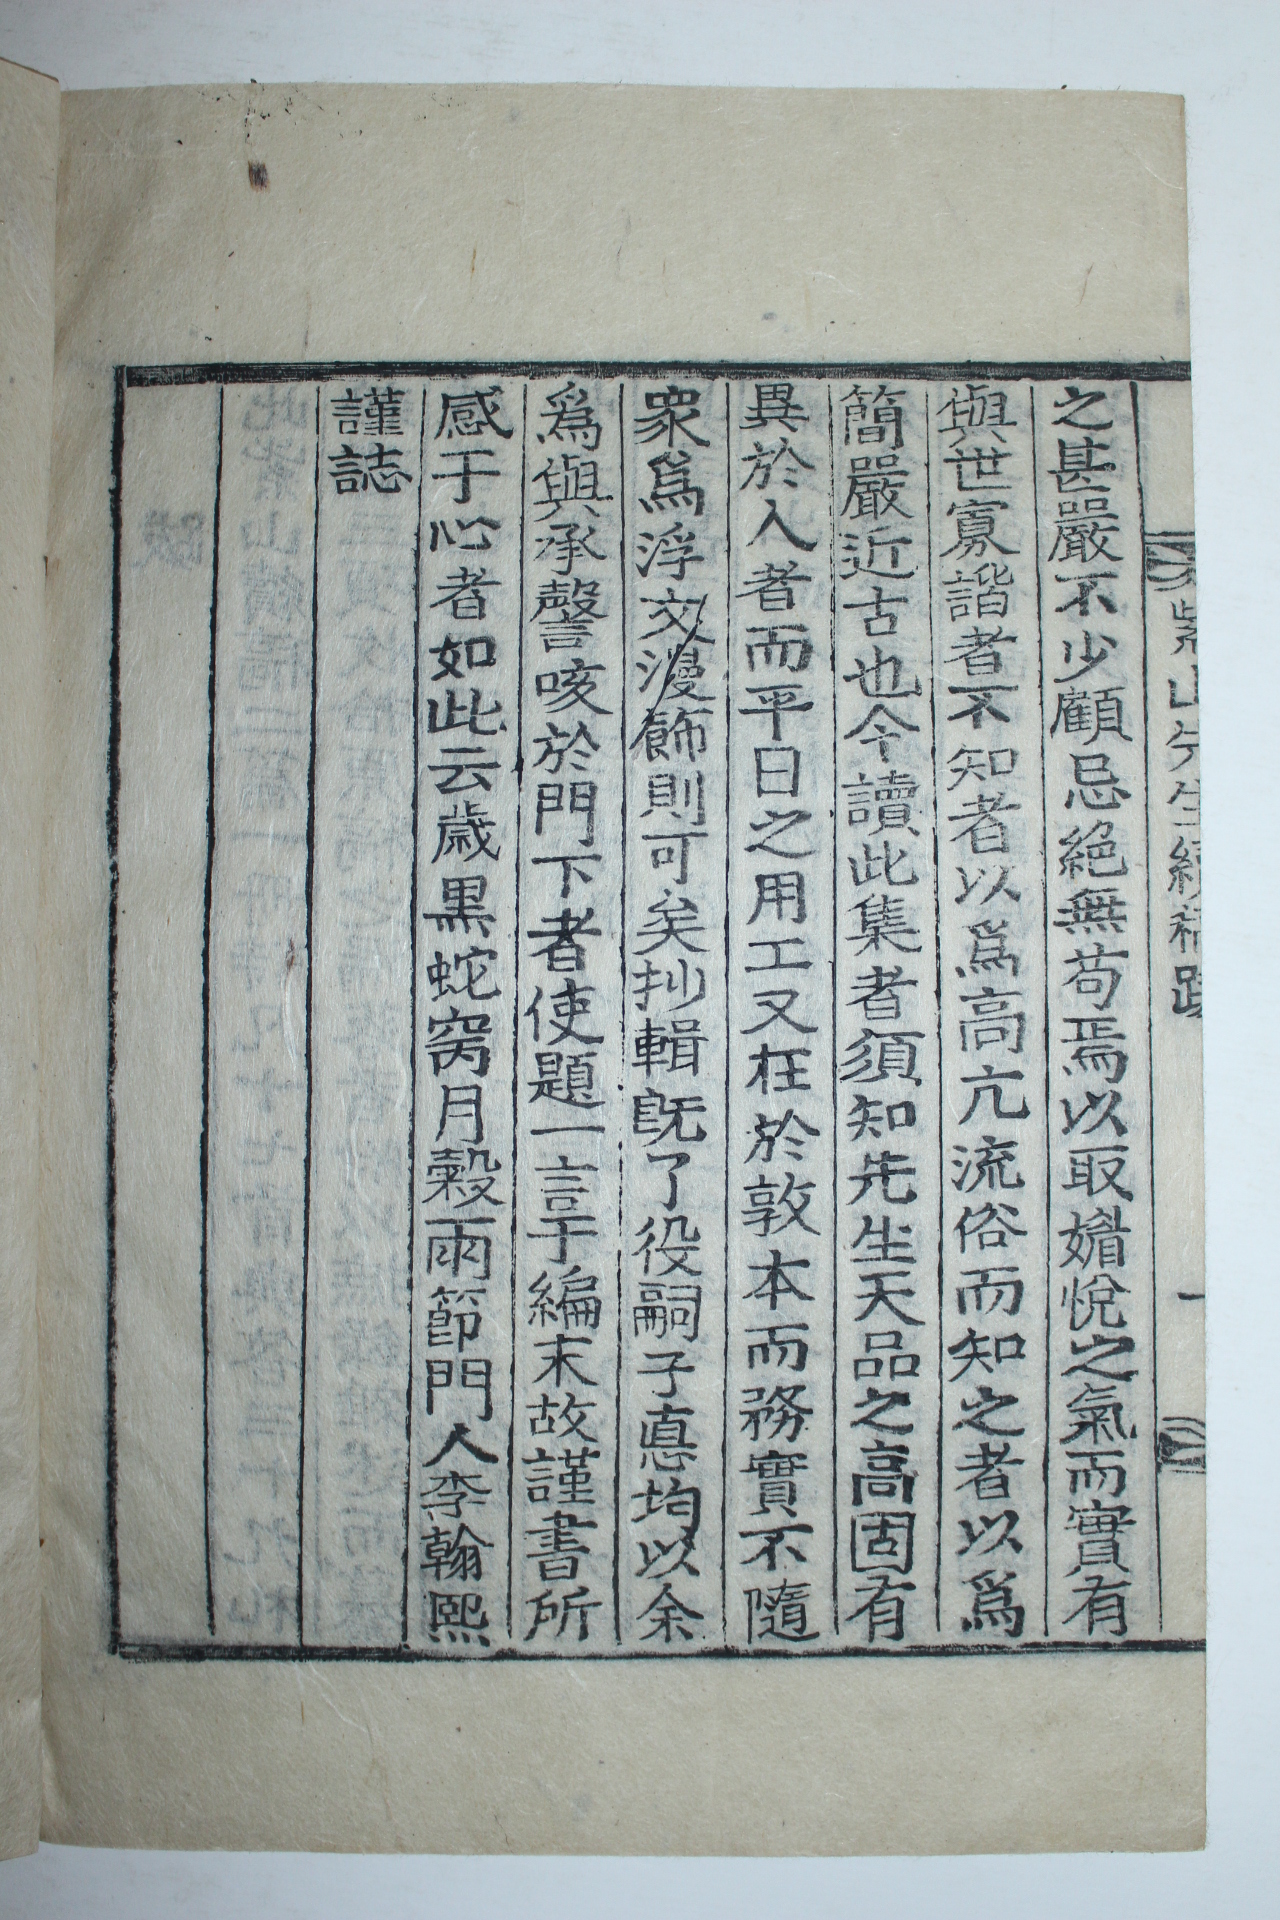 紫山先生續稿跋
一
之甚嚴不少顧忌絕無苟焉以取媚悅之氣而實有
與世寡諧者不知者以爲高亢流俗而知之者以爲
簡嚴近古也今讀此集者須知先生天品之高固有
異於入者而平日之用工又在於敦本而務實不隨
衆爲浮文漫飾則可矣抄輯旣了役嗣子悳均以余
爲與承謦咳於門下者使題一言于編末故謹書所
感于心者如此云歲黑蛇窉月穀雨節門人李翰熙
謹誌